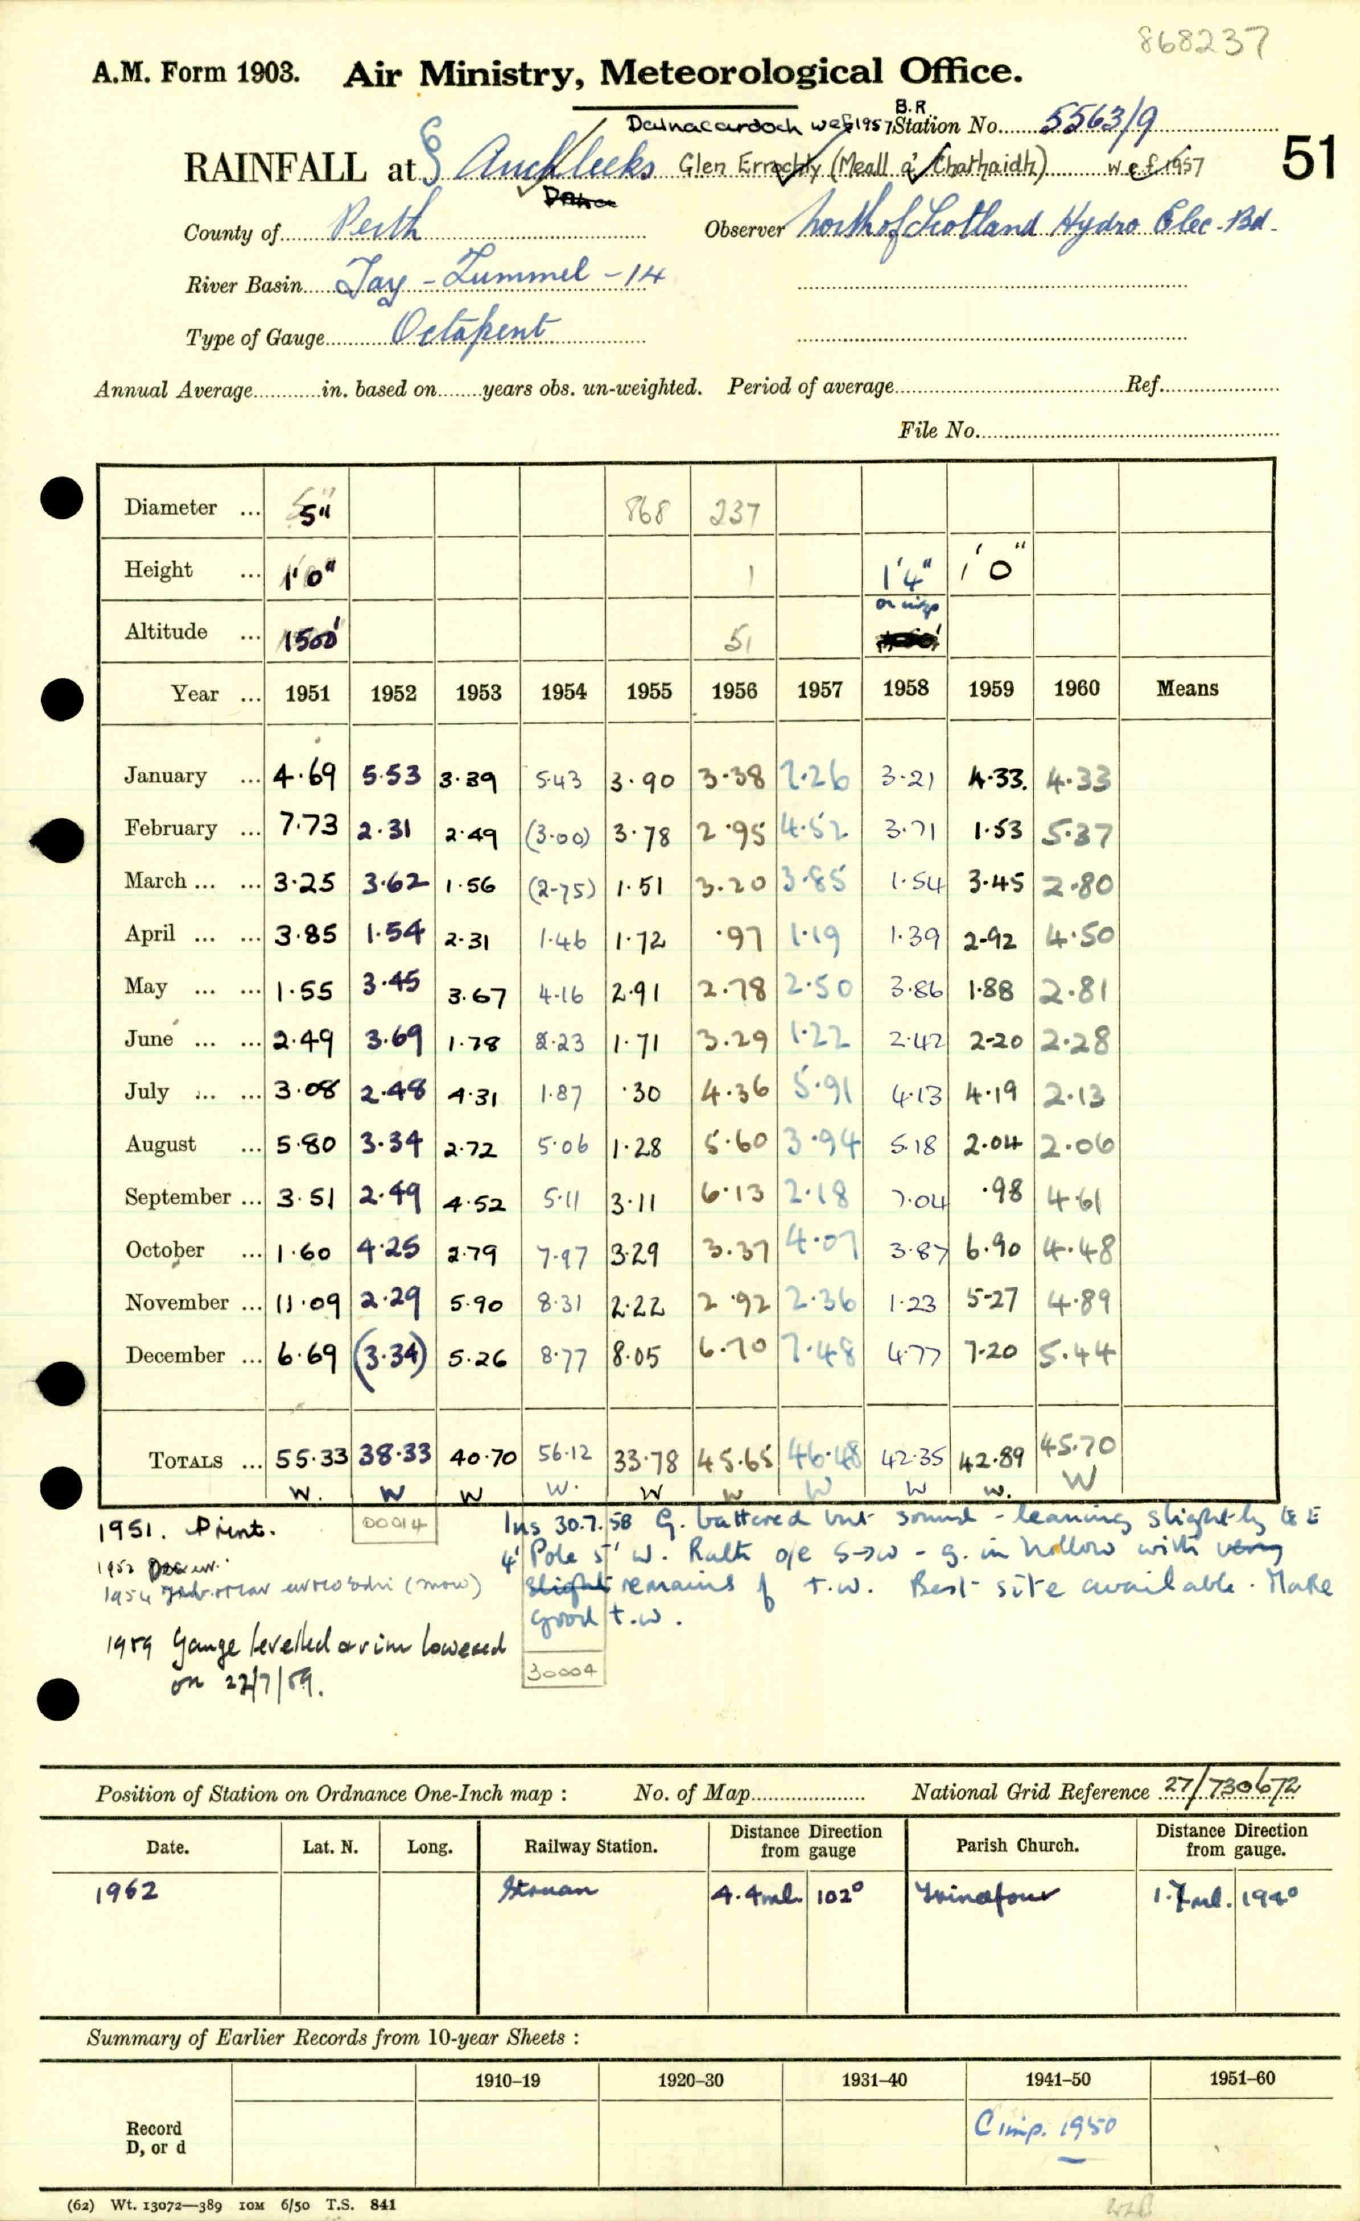 868237
A.M. Form 1903. Air Ministry, Meteorological Office.
Dalnacardoch wef 1957 B.R. Station No. 5563/9
RAINFALL at § Auchleeks Glen Errochty (Meall a' Chathaidh) wef 1957 51
County of Perth Observer North of Scotland Hydro Elec. Bd.
River Basin Tay - Tummel - 14
Type of Gauge Octapent
Annual Average in. based on years obs. un-weighted. Period of average Ref.
File No.
Diameter ... 5" 868 237
Height ... 1'0" 1 1'4" 1'0"
or insp
Altitude ... 1500' 51
Year ... 1951 1952 1953 1954 1955 1956 1957 1958 1959 1960 Means
January ... 4.69 5.53 3.39 5.43 3.90 3.38 7.26 3.21 4.33 4.33
February ... 7.73 2.31 2.49 (3.00) 3.78 2.95 4.52 3.71 1.53 5.37
March ... ... 3.25 3.62 1.56 (2.75) 1.51 3.20 3.85 1.54 3.45 2.80
April ... ... 3.85 1.54 2.31 1.46 1.72 .97 1.19 1.39 2.92 4.50
May ... ... 1.55 3.45 3.67 4.16 2.91 2.78 2.50 3.86 1.88 2.81
June ... ... 2.49 3.69 1.78 2.23 1.71 3.29 1.22 2.42 2.20 2.28
July ... ... 3.08 2.48 4.31 1.87 .30 4.36 5.91 4.13 4.19 2.13
August ... 5.80 3.34 2.72 5.06 1.28 5.60 3.94 5.18 2.04 2.06
September ... 3.51 2.49 4.52 5.11 3.11 6.13 2.18 7.04 .98 4.61
October ... 1.60 4.25 2.79 7.97 3.29 3.37 4.07 3.87 6.90 4.48
November ... 11.09 2.29 5.90 8.31 2.22 2.92 2.36 1.23 5.27 4.89
December ... 6.69 (3.34) 5.26 8.77 8.05 6.70 7.48 4.77 7.20 5.44
Totals ... 55.33 38.33 40.70 56.12 33.78 45.65 46.48 42.35 42.89 45.70
W. W W W. W W W W W. W
1951. Print. 00014 Ins 30.7.58 G. battered but sound - leaning slightly to E
1952 Dec 4' Pole 5' W. Ralk o/e S→W - g. in hollow with very
1954 (snow) slight remains of t.w. Best site available. Make
good t.w.
1959 Gauge levelled & rim lowered
on 22/7/59.
30004
Position of Station on Ordnance One-Inch map : No. of Map National Grid Reference 27/730672
Date. Lat. N. Long. Railway Station. Distance from gauge Direction Parish Church. Distance from gauge. Direction
1962 Struan 4.4ml. 102° Trinafour 1.7ml. 194°
Summary of Earlier Records from 10-year Sheets :
1910–19 1920–30 1931–40 1941–50 1951–60
Record
D, or d
C imp. 1950
(62) Wt. 13072—389 10M 6/50 T.S. 841